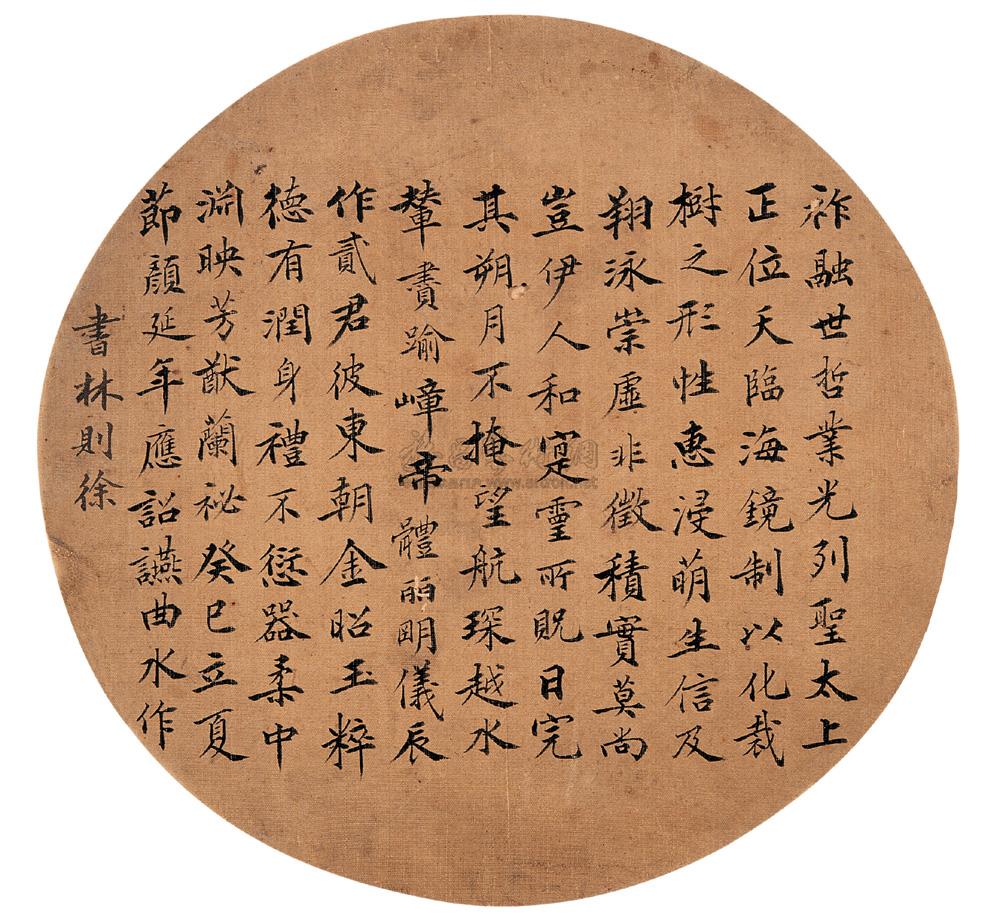 祚融世哲業光列聖太上
正位天臨海鏡制以化裁
樹之形性惠浸萌生信及
翔泳崇虛非徵積實莫尚
豈伊人和寔靈所貺日完
其朔月不掩望航琛越水
輦賮踰嶂帝體麗明儀辰
作貳君彼東朝金昭玉粹
德有潤身禮不愆器柔中
淵映芳猷蘭祕癸巳立夏
節顏延年應詔讌曲水作
書林則徐